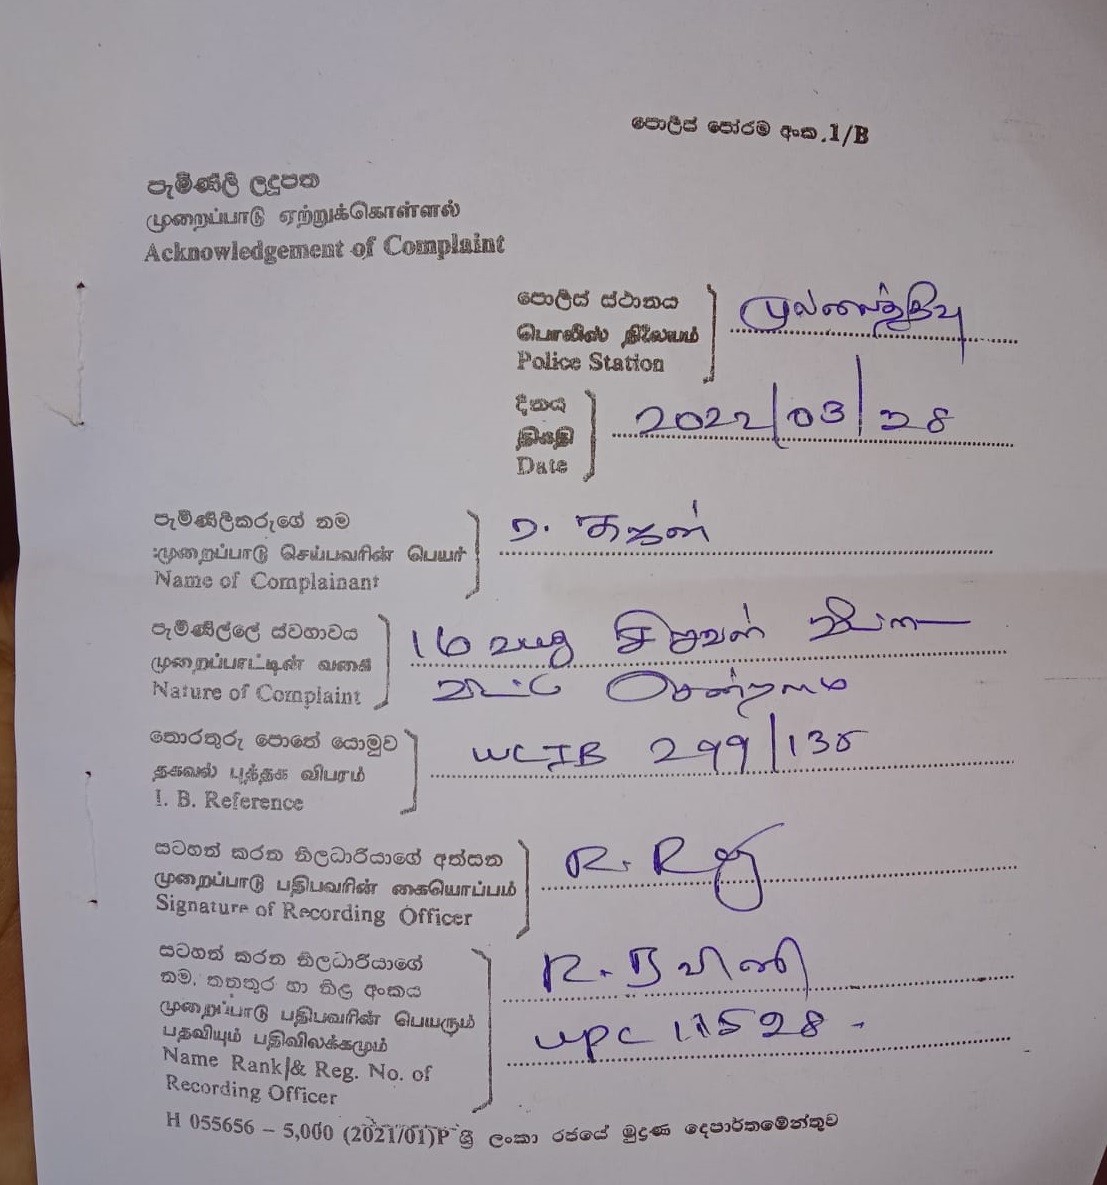 පොලිස් පෝරම අංක.1/B
පැමිණිලි ලදුපත
முறைப்பாடு ஏற்றுக்கொள்ளல்
Acknowledgement of Complaint
පොලිස් ස්ථානය
பொலிஸ் நிலையம்
Police Station
முல்லைத்தீவு
දිනය
திகதி
Date
2022/03/28
පැමිණිලිකරුගේ නම
முறைப்பாடு செய்பவரின் பெயர்
Name of Complainant
கஜன்
පැමිණිල්ලේ ස්වභාවය
முறைப்பாட்டின் வகை
Nature of Complaint
16 வயது சிறுவன்
தொරතුරු පොතේ යොමුව
தகவல் புத்தக விபரம்
I. B. Reference
WCIB 299/138
සටහන් කරන නිලධාරියාගේ අත්සන
முறைப்பாடு பதிபவரின் கையொப்பம்
Signature of Recording Officer
සටහන් කරන නිලධාරියාගේ
නම, තනතුර හා නිල අංකය
முறைப்பாடு பதிபவரின் பெயரும்
பதவியும் பதிவிலக்கமும்
Name Rank & Reg. No. of
Recording Officer
WPC 11528
H 055656 – 5,000 (2021/01)P ශ්‍රී ලංකා රජයේ මුද්‍රණ දෙපාර්තමේන්තුව